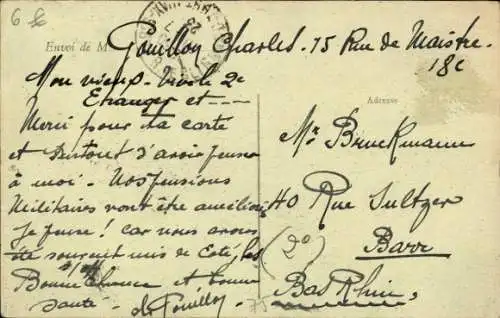 Envoi de M. Pouillon Charles. 75 Rue de Maistre.
18e
Mon vieux - vive le 2e
Etranger et ----
Merci pour ta carte
et surtout d'avoir penser
à moi - Nos pensions
Militaires vont être améliorés
je pense! car nous avons
souvent mis de Coté, les
Bonne Chance et bonne
santé - Ch. Pouillon
Adresse
Mr Bruckmann
40 Rue Sultzer
(2°) Barr
Bas Rhin